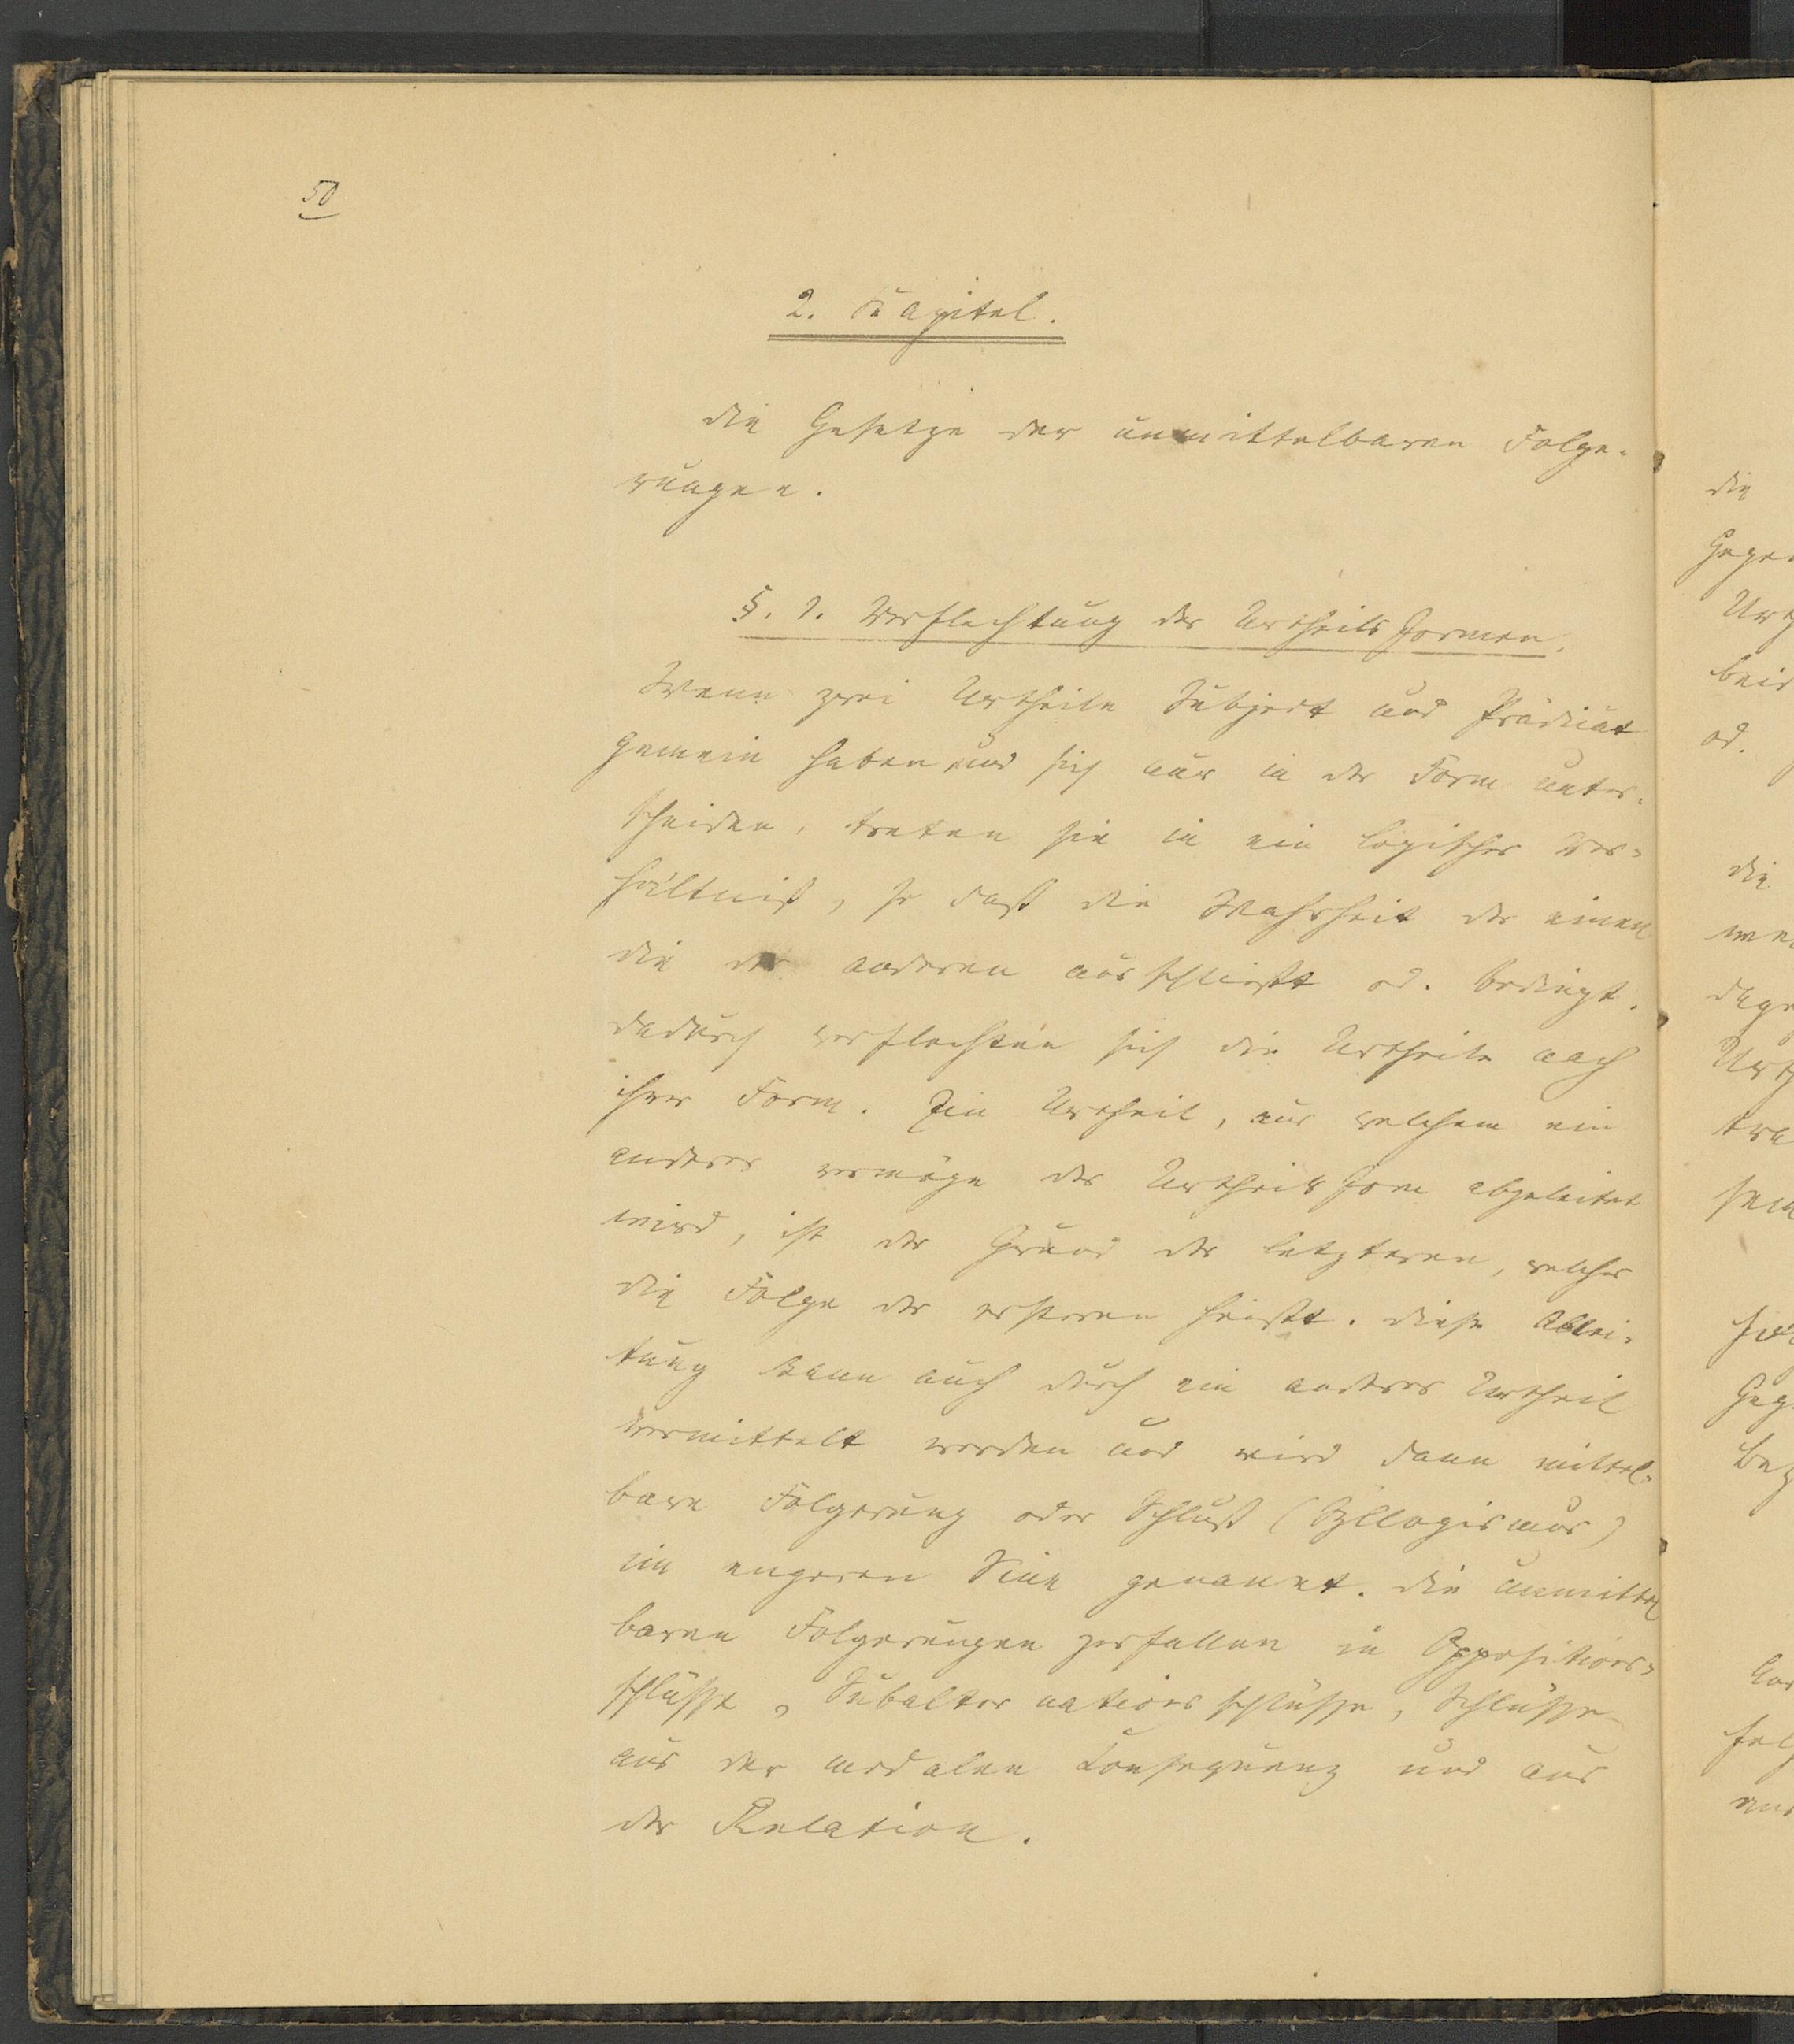 50
2. Kapitel.
Die Gesetze der unmittelbaren Folge-
rungen.
§. 1. Verflechtung der Urtheilsformen.
Wenn zwei Urtheile Subject und Prädicat
gemein haben und sich nur in der Form unter-
scheiden, treten sie in ein logisches Ver-
hältniß, so daß die Wahrheit des einen
die des anderen ausschließt od. bedingt.
Dadurch verflechten sich die Urtheile nach
ihrer Form. Ein Urtheil, aus welchem ein
anderes vermöge der Urtheilsform abgeleitet
wird, ist der Grund des letzteren, welches
die Folge des ersteren heißt. Diese Ablei-
tung kann auch durch ein anderes Urtheil
vermittelt werden und wird dann mittel-
bare Folgerung oder Schluß (Syllogismus)
im engeren Sinn genannt. Die unmittel
baren Folgerungen zerfallen in Oppositions-
schlüsse, Subalternationsschlüsse, Schlüsse
aus der modalen Consequenz und aus
der Relation.
die
Gegen
Urth
beid
od.
die
dage
Urth